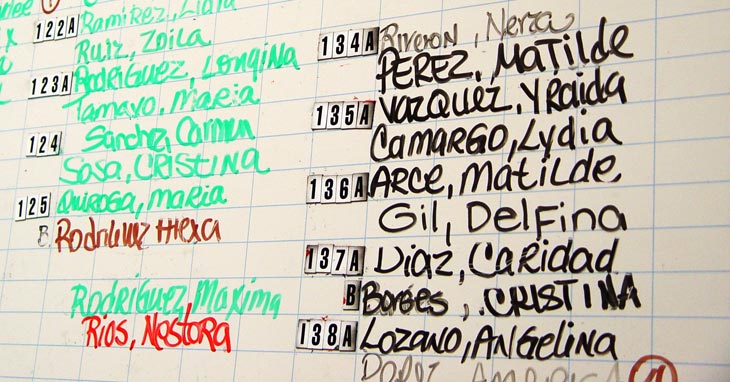 122A Ramirez, Lidia
Ruiz, Zoila
123A Rodriguez, Longina
Tamayo, Maria
124 Sanchez, Carmen
Sosa, CRISTINA
125 Quiroga, Maria
B Rodriguez
Rodriguez, Maxima
Rios, Nestora
134A Riveron, Nerza
PEREZ, MATILDE
135A VAZQUEZ, YRaida
CAMARGO, Lydia
136A ARCE, MATILDE
Gil, DelFina
137A DiAZ, CARiDAD
B Borges, CRISTINA
138A Lozano, ANGELINA